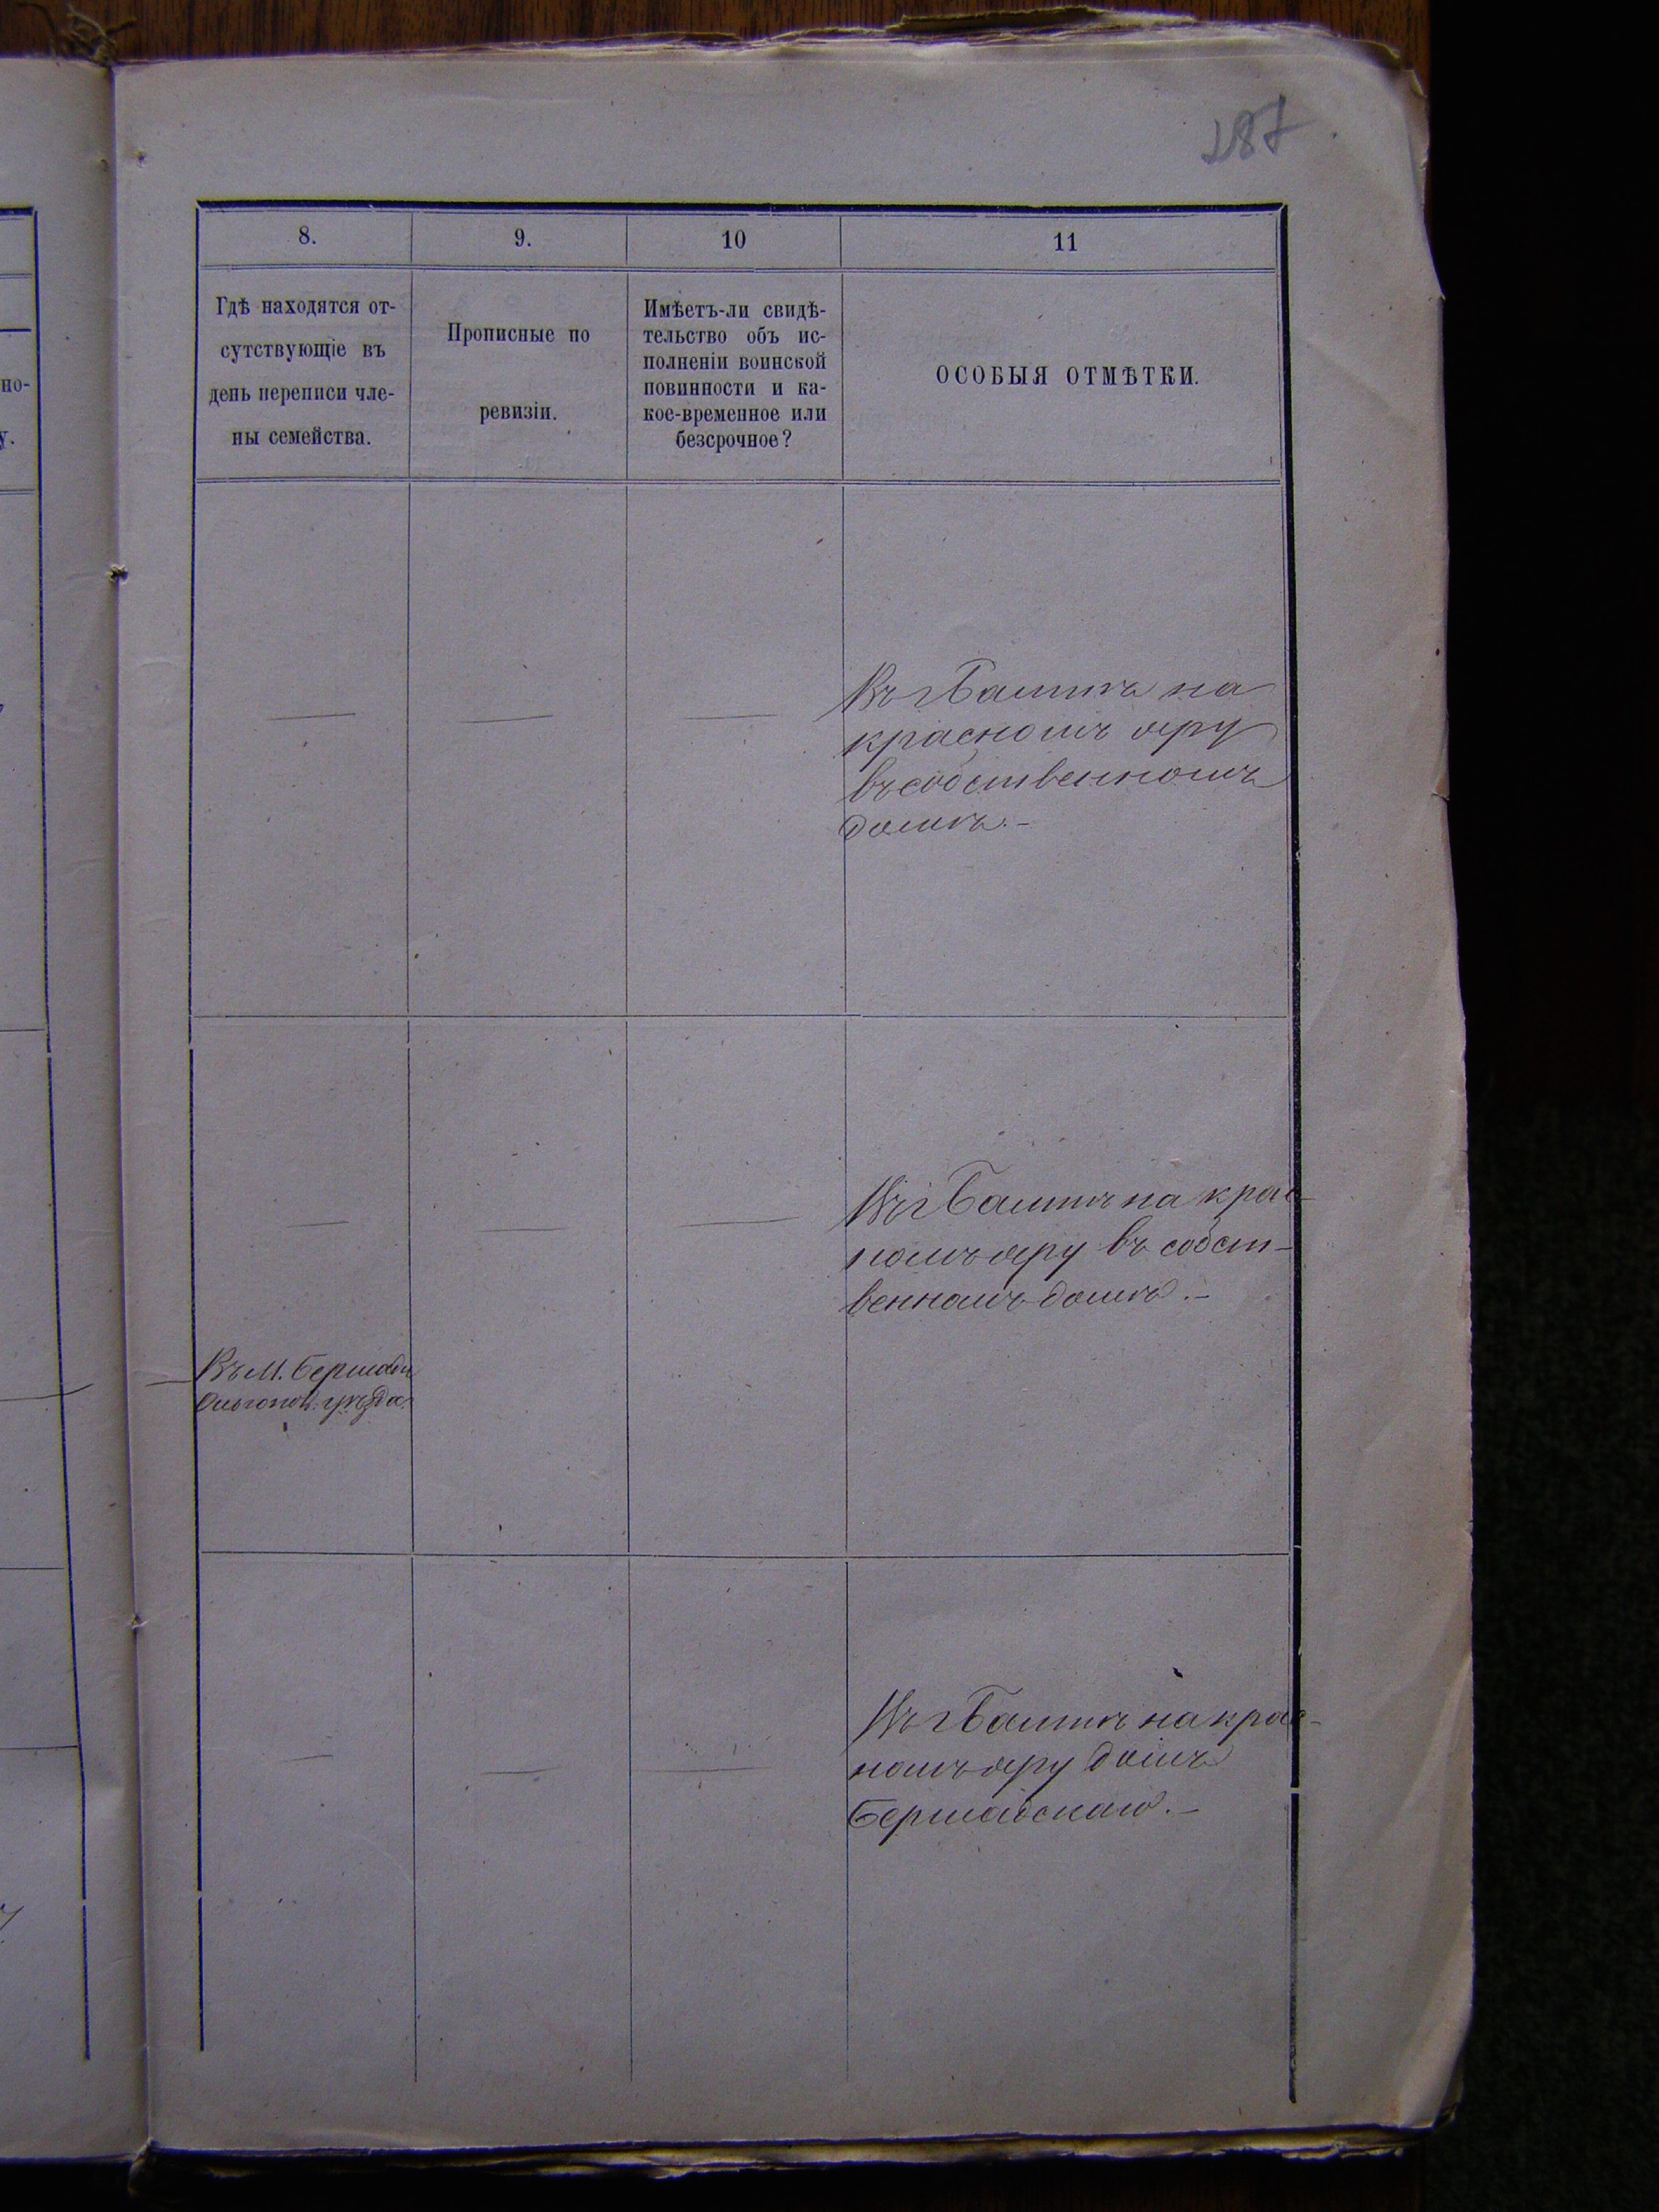 287
но-
у.
8.
9.
10
11
Гдѣ находятся от-
сутствующіе въ
день переписи чле-
ны семейства.
Прописные по
ревизіи.
Имѣетъ-ли свидѣ-
тельство объ ис-
полненіи воинской
повинности и ка-
кое-временное или
безсрочное?
ОСОБЫЯ ОТМѢТКИ.
Въ г Балтѣ на
красномъ яру
въ собственномъ
домѣ.-
Въ г Балтѣ на крас-
номъ яру въ собст-
венномъ домѣ.-
Въ М. Бершади
Ольгопол. уѣзда.
Въ г Балтѣ на крас-
номъ яру домъ
Бершадскаго.-